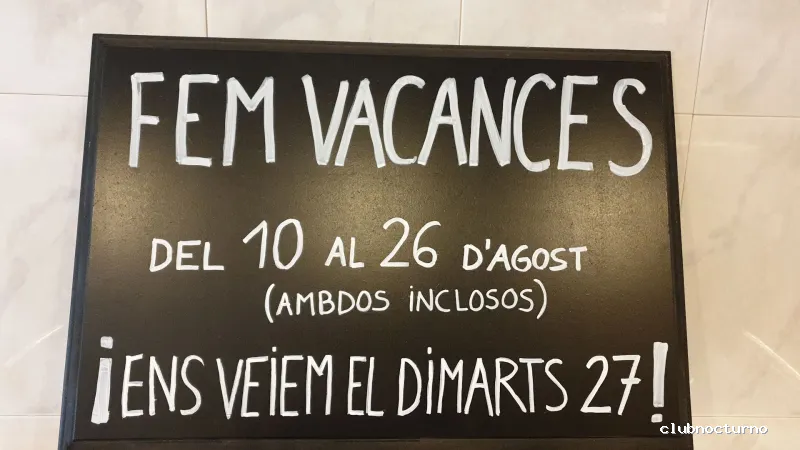 FEM VACANCES
DEL 10 AL 26 D'AGOST
(AMBDOS INCLOSOS)
¡ENS VEIEM EL DIMARTS 27!
clubnocturno